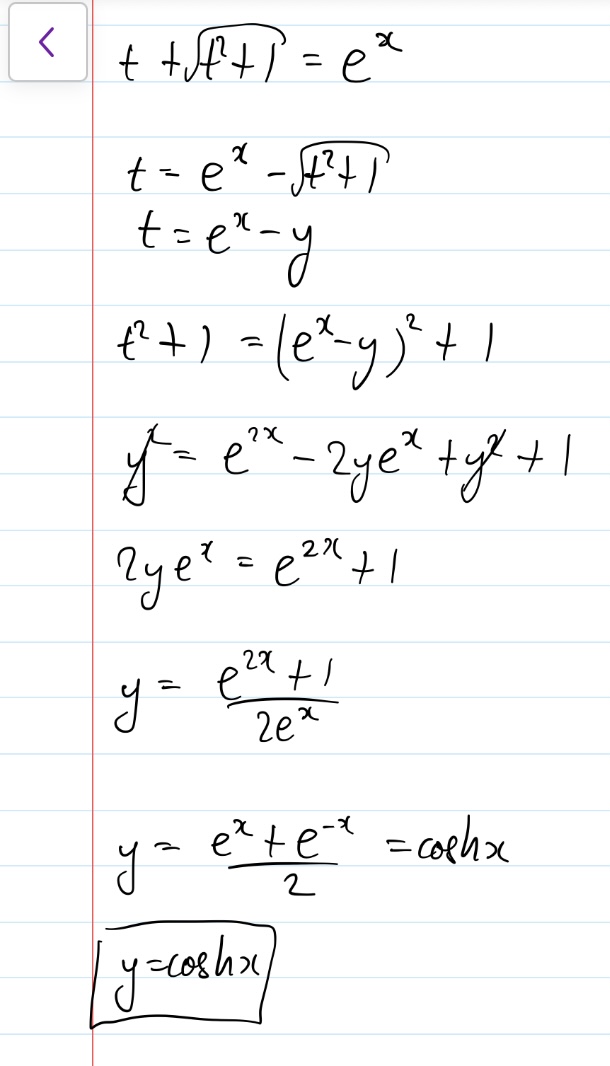 t + √(t²+1) = eˣ
t = eˣ - √(t²+1)
t = eˣ - y
t² + 1 = (eˣ - y)² + 1
y² = e²ˣ - 2yeˣ + y² + 1
2yeˣ = e²ˣ + 1
y = (e²ˣ + 1)/(2eˣ)
y = (eˣ + e⁻ˣ)/2 = coshx
y=coshx